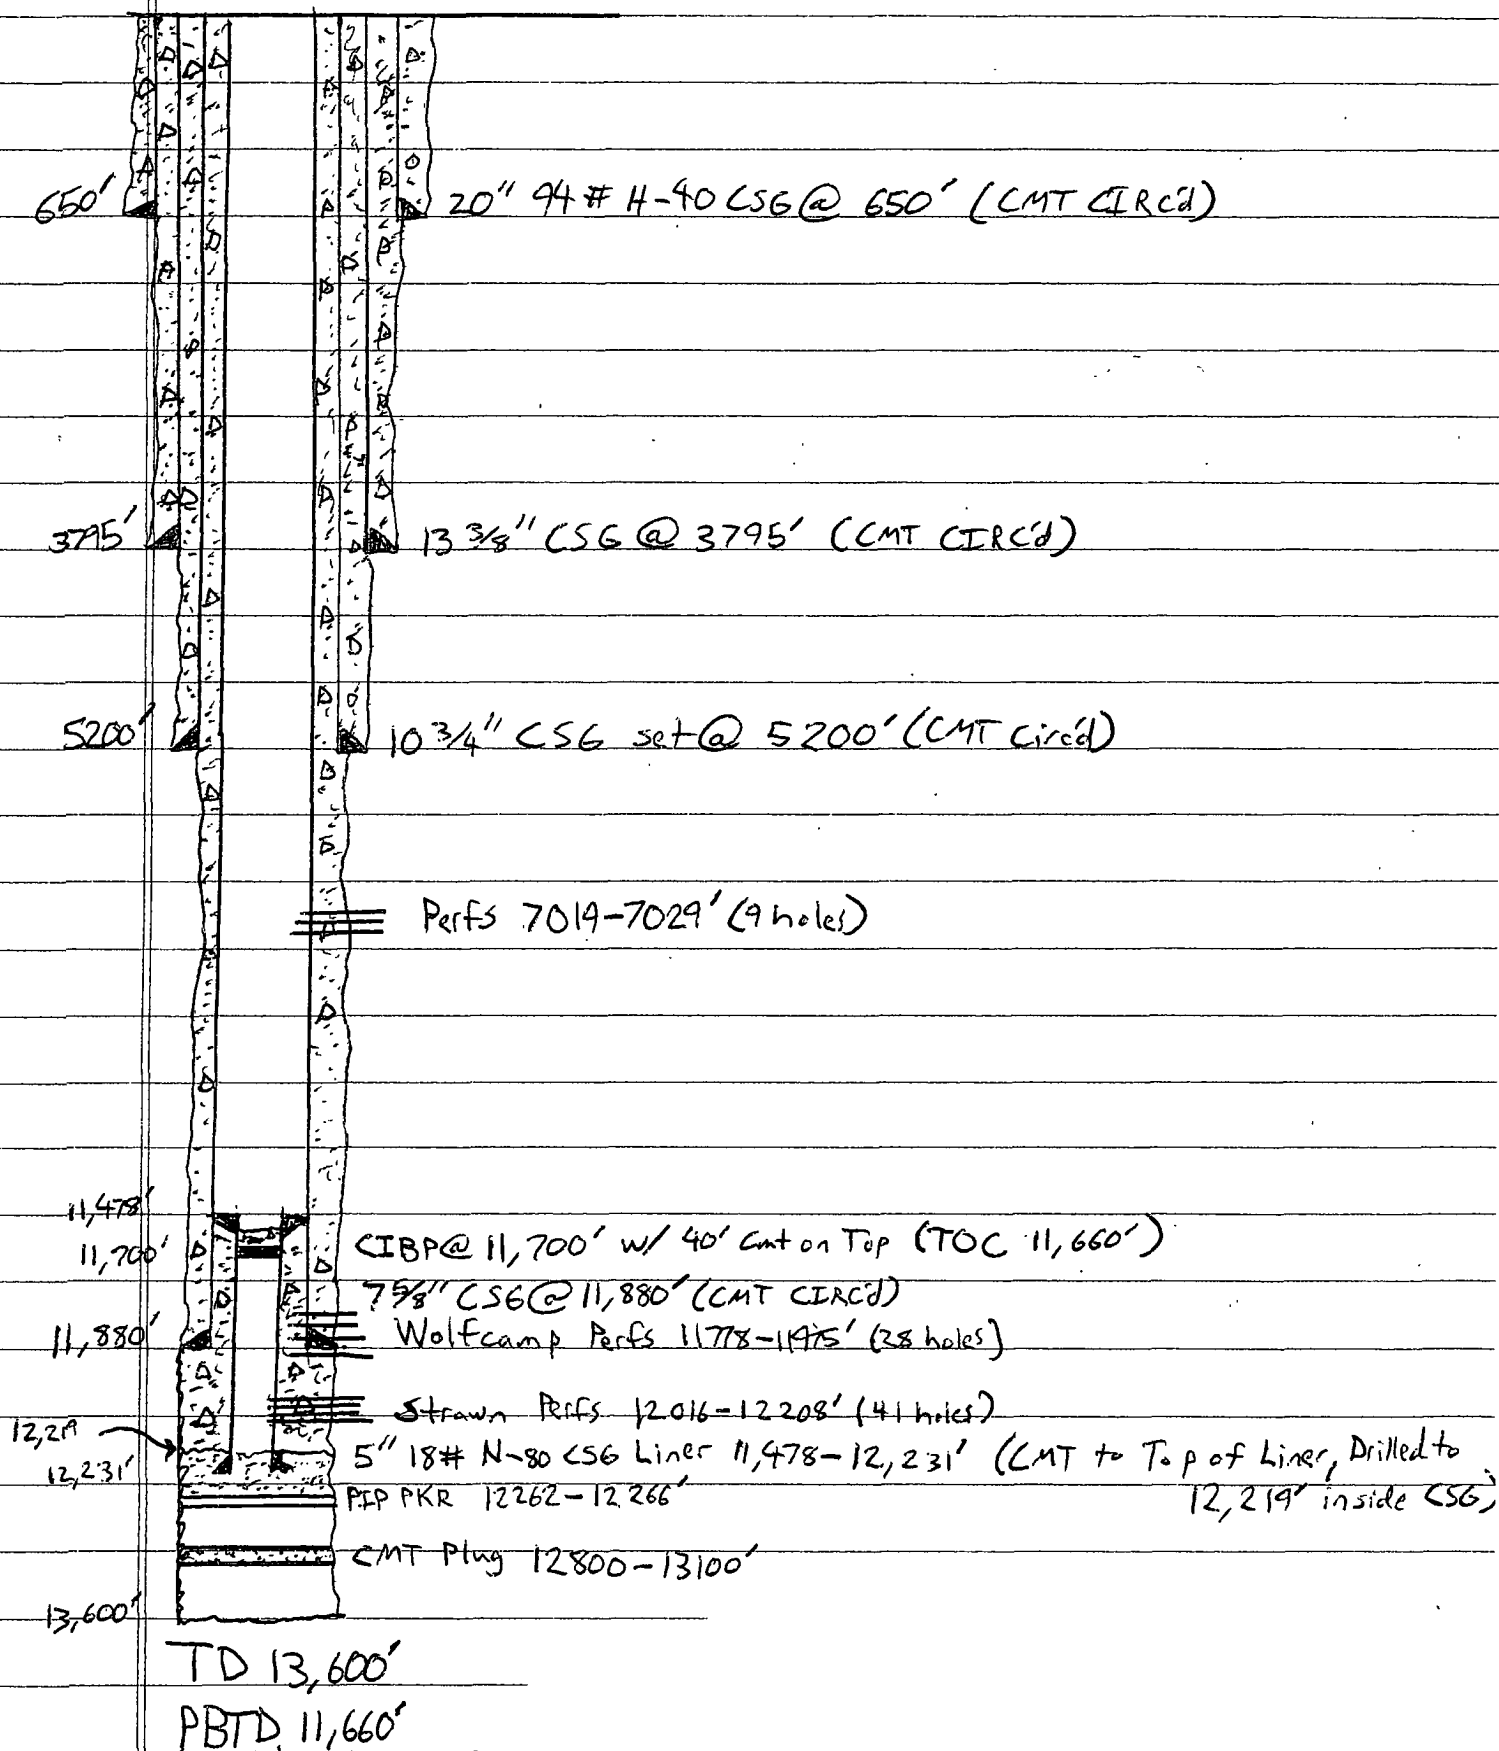 650'
20" 94# H-40 CSG @ 650' (CMT CIRC'd)
3795'
13 3/8" CSG @ 3795' (CMT CIRC'd)
5200'
10 3/4" CSG set @ 5200' (CMT Circ'd)
Perfs 7019-7029' (9 holes)
11,478'
11,700'
CIBP @ 11,700' w/ 40' Cmt on Top (TOC 11,660')
7 5/8" CSG @ 11,880' (CMT CIRC'd)
11,880'
Wolfcamp Perfs 11778-11975' (28 holes)
Strawn Perfs 12016-12208' (41 holes)
12,219
12,231'
5" 18# N-80 CSG Liner 11,478-12,231' (CMT to Top of Liner, Drilled to
12,219' inside CSG)
PIP PKR 12262-12266'
CMT Plug 12800-13100'
13,600'
TD 13,600'
PBTD 11,660'